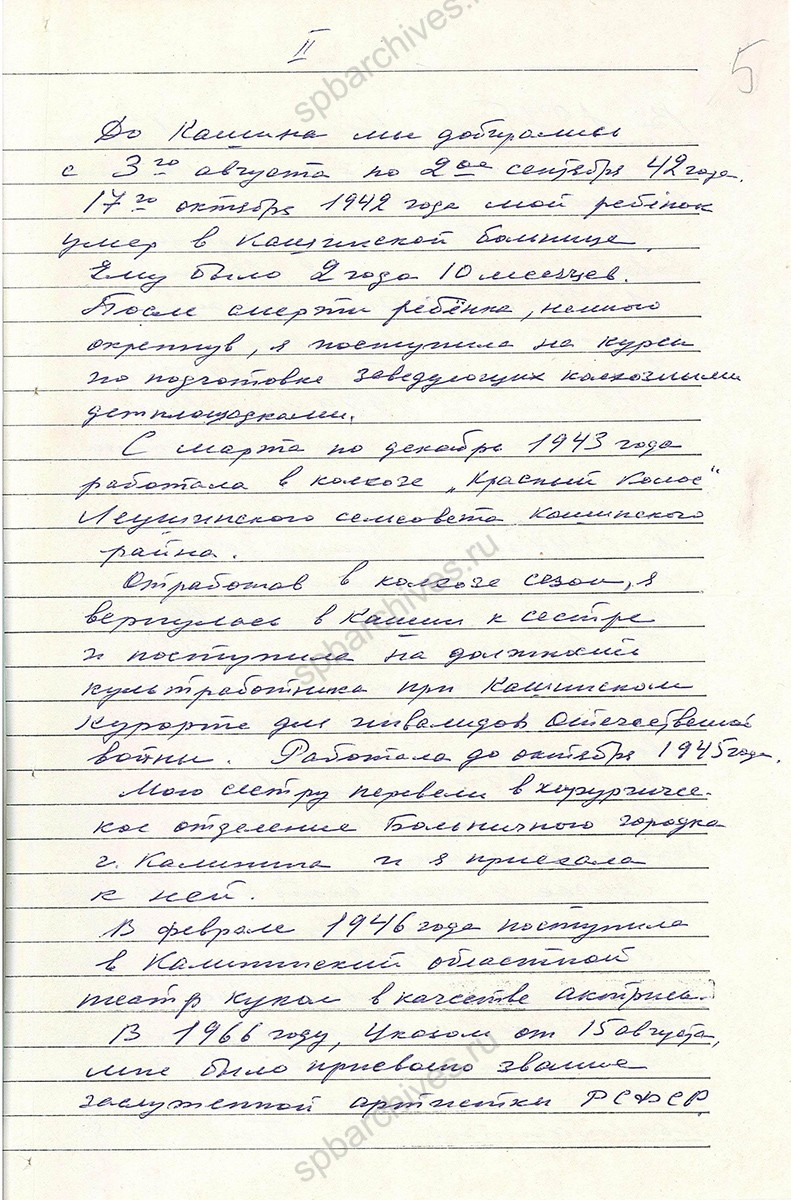 II
5
До Кашина мы добирались
с 3го августа по 2ое сентября 42 года.
17го октября 1942 года мой ребёнок
умер в Кашинской больнице.
Ему было 2 года 10 месяцев.
После смерти ребёнка, немного
окрепнув, я поступила на курсы
по подготовке заведующих колхозными
детплощадками.
С марта по декабрь 1943 года
работала в колхозе „Красный Колос"
сельсовета Кашинского
райна.
Отработав в колхозе сезон, я
вернулась в Кашин к сестре
и поступила на должность
культработника при Кашинском
курорте для инвалидов Отечественной
войны. Работала до октября 1945 года.
Мою сестру перевели в хирургичес-
кое отделение Больничного городка
г. Калинина и я приехала
к ней.
В феврале 1946 года поступила
в Калининский областной
театр кукол в качестве актрисы.
В 1966 году, Указом от 15 августа,
мне было присвоено звание
заслуженной артистки РСФСР.
spbarchives.ru
spbarchives.ru
spbarchives.ru